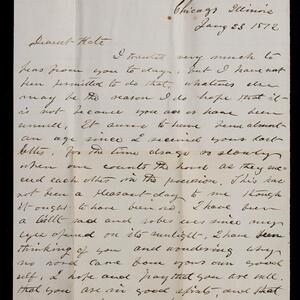 Chicago Illinois
Jany 23 1872
Dearest Kate
I wanted very much to
hear from you to day, but I have not
been permitted to do that, whatever else
may be the reason I do hope that it
is not because you are or have been
unwell. It seems to have been almost
an age since I received your last
letter, for the time drags so slowly
when one counts the hours as they suc-
ceed each other in the procession. This has
not been a pleasant day to me though
it ought to have been so. I have been
a little sad and sober ever since my
eyes opened on its sunlight, I have been
thinking of you and wondering why
no word came from your own good
self, I hope and pray that you are well
that you are in good spirits, and that